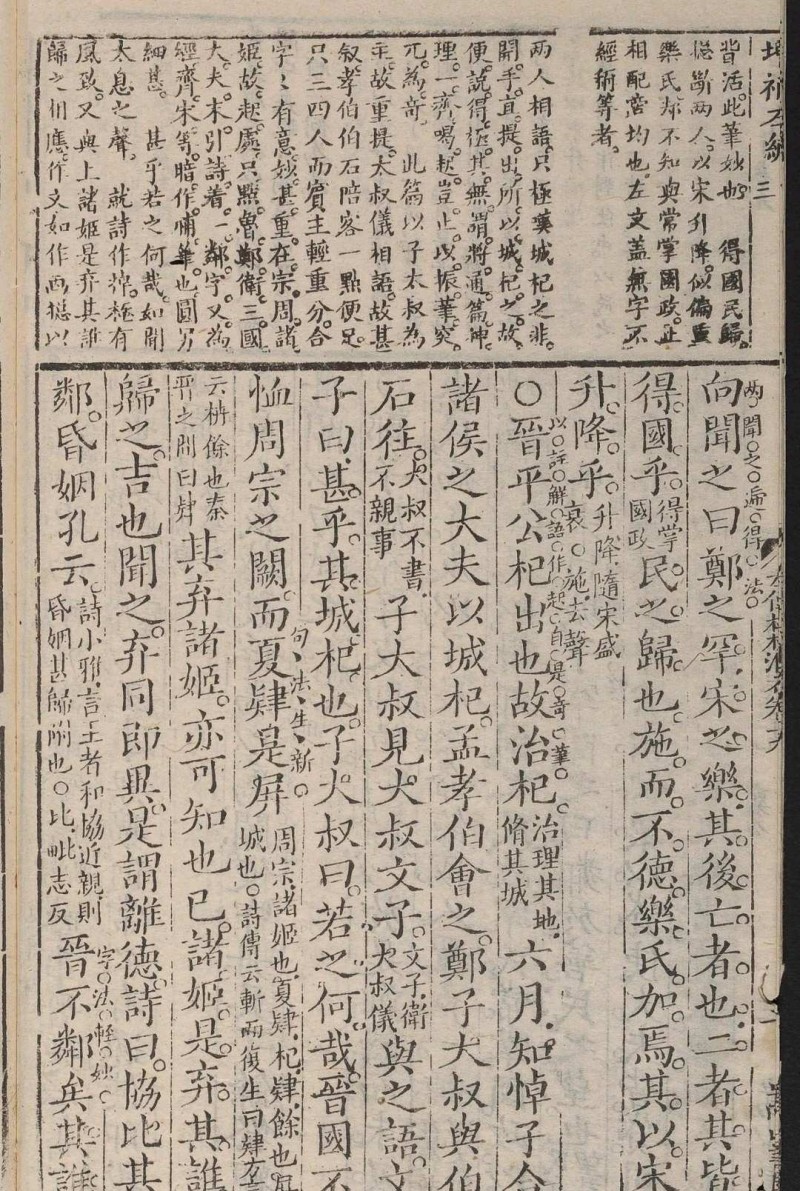 皆活此筆妙也　得國民歸
樂氏却不知與常掌國政止
相配當均也左文蓋無字不
經術等者
兩人相語只極嘆城杞之非
開手直提出所以城杞之故
便說得極其無謂將通篇神
理一齊喝起豈止以振筆突
兀為奇　此篇以子太叔為
主故重提太叔儀相語故甚
叙孝伯伯石陪客一點便足
只三四人而賓主輕重分合
字字有意妙甚重在宗周諸
姬故起處只點魯鄭衛三國
大夫末引詩着一鄰字又為
細甚　甚乎若之何哉如聞
太息之聲　就詩作掉極有
風致又與上諸姬是弃其誰
歸之相應作文如作画掻以
向聞之曰鄭之罕宋之樂其後亡者也二者其皆
兩聞之遍得法
得國乎得掌國政民之歸也施而不德樂氏加焉其以宋
升降乎升降隨宋盛衰施去聲
以註解語作起自是奇筆
○晉平公杞出也故治杞治理其地脩其城六月知悼子合
諸侯之大夫以城杞孟孝伯會之鄭子大叔與伯
石往大叔不書不親事子大叔見大叔文子文子衛大叔儀與之語文
子曰甚乎其城杞也子大叔曰若之何哉晉國不
句法生新
恤周宗之闕而夏肄是屏周宗諸姬也夏肄杞肄餘也屏城也○詩傳云斬而復生曰肄方言
云枿餘也秦晉之間曰肄其弃諸姬亦可知也已諸姬是弃其誰
歸之吉也聞之弃同即異是謂離德詩曰協比其
字法輕妙
鄰昏姻孔云詩小雅言王者和協近親則昏姻甚歸附也○比毗志反晉不鄰矣其誰